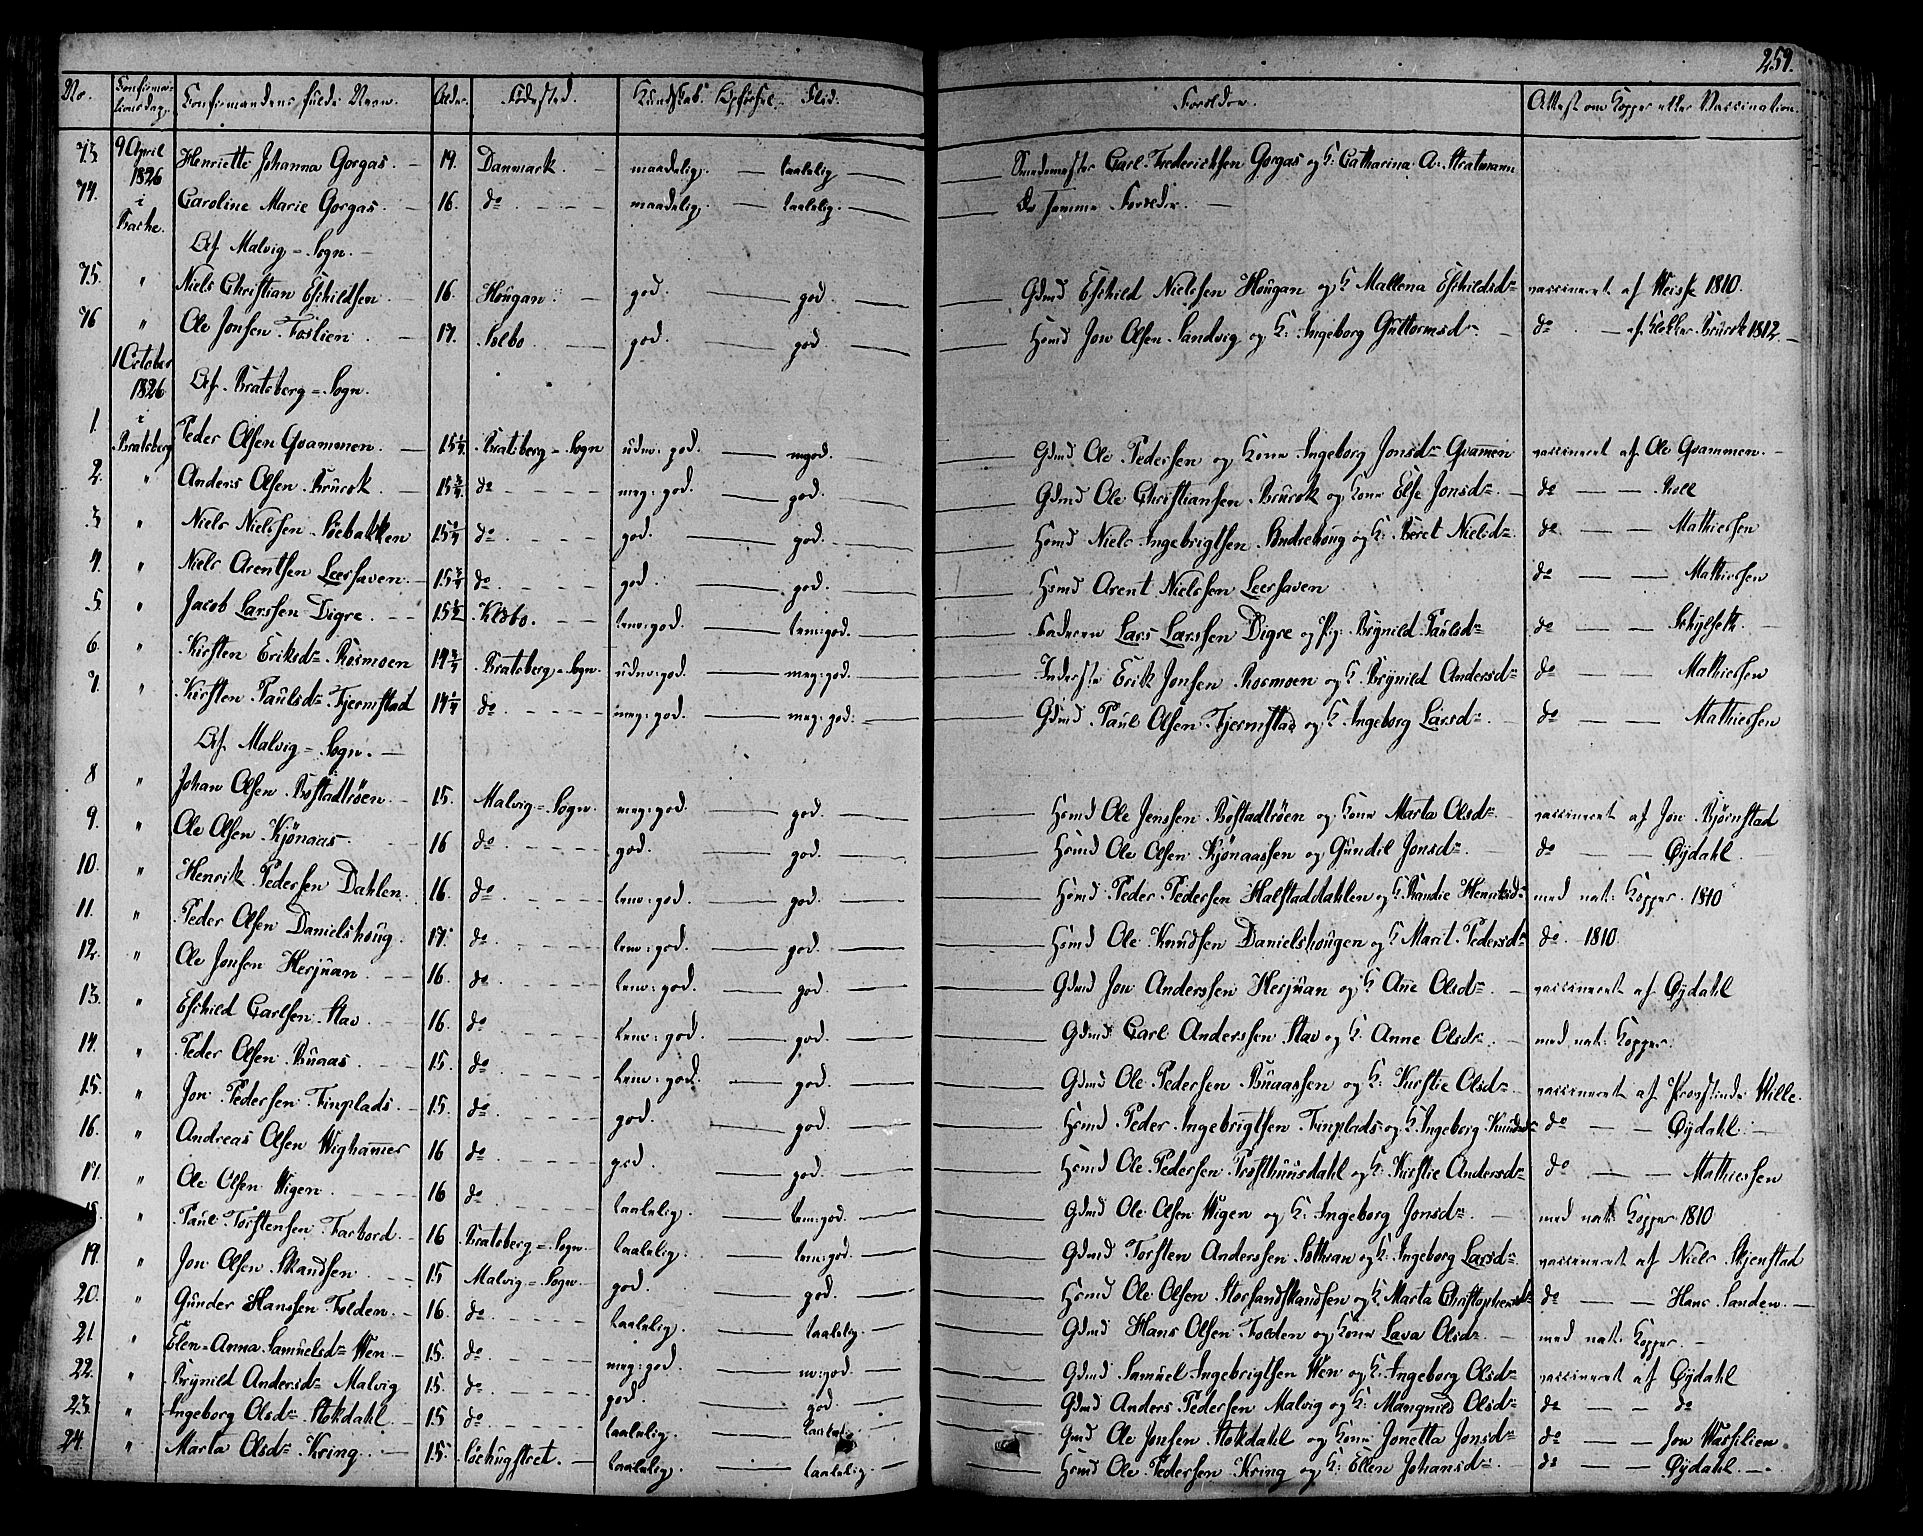 259.
No. Confirmationsdag. Confirmandens fulde Navn. Alder. Fødested. Kundskab. Opførsel. Flid. Forældre. Attest om Kopper eller Vaccination.
73. 9 April 1826 Henriette Johanna Gorgas. 19. Danmark. maadelig. taalelig Smedemester Carl Frederichsen Gorgas og K: Catharina A. Stratmann
74. i Bache. Caroline Marie Gorgas. 16. do maadelig. taalelig. De samme Forældre.
Af Malvig-Sogn.
75. " Niels Christian Eschildsen 16. Hougan god. god. Gdmd Eschild Nielssen Hougan og K Mallena Eschildsdr vaccineret af Weisk 1810.
76 " Ole Jonsen Foslien 17. Selbo. god. god Hsmd Jon Olsen Sandvig og K: Ingeborg Guttormsdr do af Klokker Brurok 1812.
1 October 1826 Af Bratsberg-Sogn.
1. i Bratsberg Peder Olsen Qvammen. 15 1/4 Bratsberg-Sogn udm: god. mgod. Gdmd Ole Pedersen og Kone Ingeborg Jonsdr Qvamen vaccineret af Ole Qvammen.
2. " Anders Olsen Brurok 15 3/4 do meg: god. god. Gdmd Ole Christiansen Brurok og Kone Else Jonsdr do Roll
3 " Niels Nielssen Söebakken 15 3/4 do god. god. Hsmd Niels Ingebrigtsen Bndreboug og K: Beret Nielsdr do Mathiessen
4. " Niels Arentsen Leershaven. 15 3/4 do god. god. Hsmd Arent Nielssen Leershaven do Mathiessen
5. " Jacob Larssen Digre. 15 1/2 Klæbo. tem: god. tem: god. Lars Larssen Digre og Pig: Brynild Paulsdr do
6. " Kirsten Eriksdr Rosmoen 14 3/4 Bratsberg-Sogn. udm: god. meg: god. Inderste Erik Jonsen Rosmoen og K Brynild Andersdr do Mathiessen
7. " Kirsten Paulsdr Fjermstad 14 1/4 do meg: god. meg: god: Gdmd Paul Olsen Fjermstad og K. Ingeborg Larsdr do Mathiessen
Af Malvig-Sogn.
8 " Johan Olsen Bostadtröen 15. Malvig-Sogn. meg: god. god. Hsmd Ole Jenssen Bostadtröen og Kone Marta Olsdr vaccineret af Jon Bjørnstad
9. " Ole Olsen Kjönaas 16 do god. god. Hsmd Ole Olsen Kjönaassen og Gundil Jonsdr do Öydahl
10. " Henrik Pedersen Dahlen 16. do tem: god. god. Hsmd Peder Pedersen Halstaddahlen og K Randie Henriksdr med nat: Kopper. 1810
11. " Peder Olsen Danielshoug. 17. do tem: god. god. Hsmd Ole Knudsen Danielshougen og K Marit Pedersdr do 1810
12. " Ole Jonsen Herjuan 16. do tem: god. god. Gdmd Jon Anderssen Herjuan og K Ane Olsdr vaccineret af Öydahl
13. " Eschild Carlsen Stav 16. do tem: god. god. Gdmd Carl Anderssen Stav og K. Anne Olsdr med nat: Kopper.
14. " Peder Olsen Buaas 15. do tem: god. god. Gdmd Ole Pedersen Buaassen og K: Kirstie Olsdr vaccineret af Provstinde Wille.
15. " Jon Pedersen Finplads. 15. do god. god. Hsmd Peder Ingebrigtsen Finplads og K. Ingeborg Knudsdr do Öydahl.
16. " Andreas Olsen Wighamer 16 do god. god. Hsmd Ole Pedersen Trosthuusdahl og K: Kirstie Andersdr do Mathiessen
17. " Ole Olsen Wigen. 16 do taalelig. tem: god. Gdmd Ole Olsen Wigen og K: Ingeborg Jonsdr med nat: Kopper 1810
18. " Paul Torstensen Farbord. 16 Bratsberg-Sogn. taalelig. tem: god. Gdmd Torsten Anderssen Solhvan og K: Ingeborg Larsdr vaccineret af Niels Skjenstad
19. " Jon Olsen Skandsen 15 Malvig-Sogn. god. god. Hsmd Ole Olsen Storsandskandsen og K. Marta Christophersdr do Hans Sanden.
20. " Gunder Hanssen Folden. 16. do taalelig. taalelig. Gdmd Hans Olsen Folden og Kone Lava Olsdr med nat: Kopper.
21 " Elen-Anna Samuelsdr Wen 15. do meg: god. m: god. Gdmd Samuel Ingebrigtsen Wen og K: Ingeborg Olsdr vaccineret af Öydahl
22. " Brynild Andersdr Malvig 15. do god. god. Gdmd Anders Pedersen Malvig og K: Mangnild Olsdr do do
23. " Ingeborg Olsdr Stokdahl. 15 do taalelig. taalel Gmd Ole Jonsen Stokdahl og Kone Jonetta Jonsdr do Jon Wassilien.
24. " Marta Olsdr Kring. 15. taalelig. taalelig. Hsmd Ole Pedersen Kring og K: Ellen Johansdr do Öydahl.